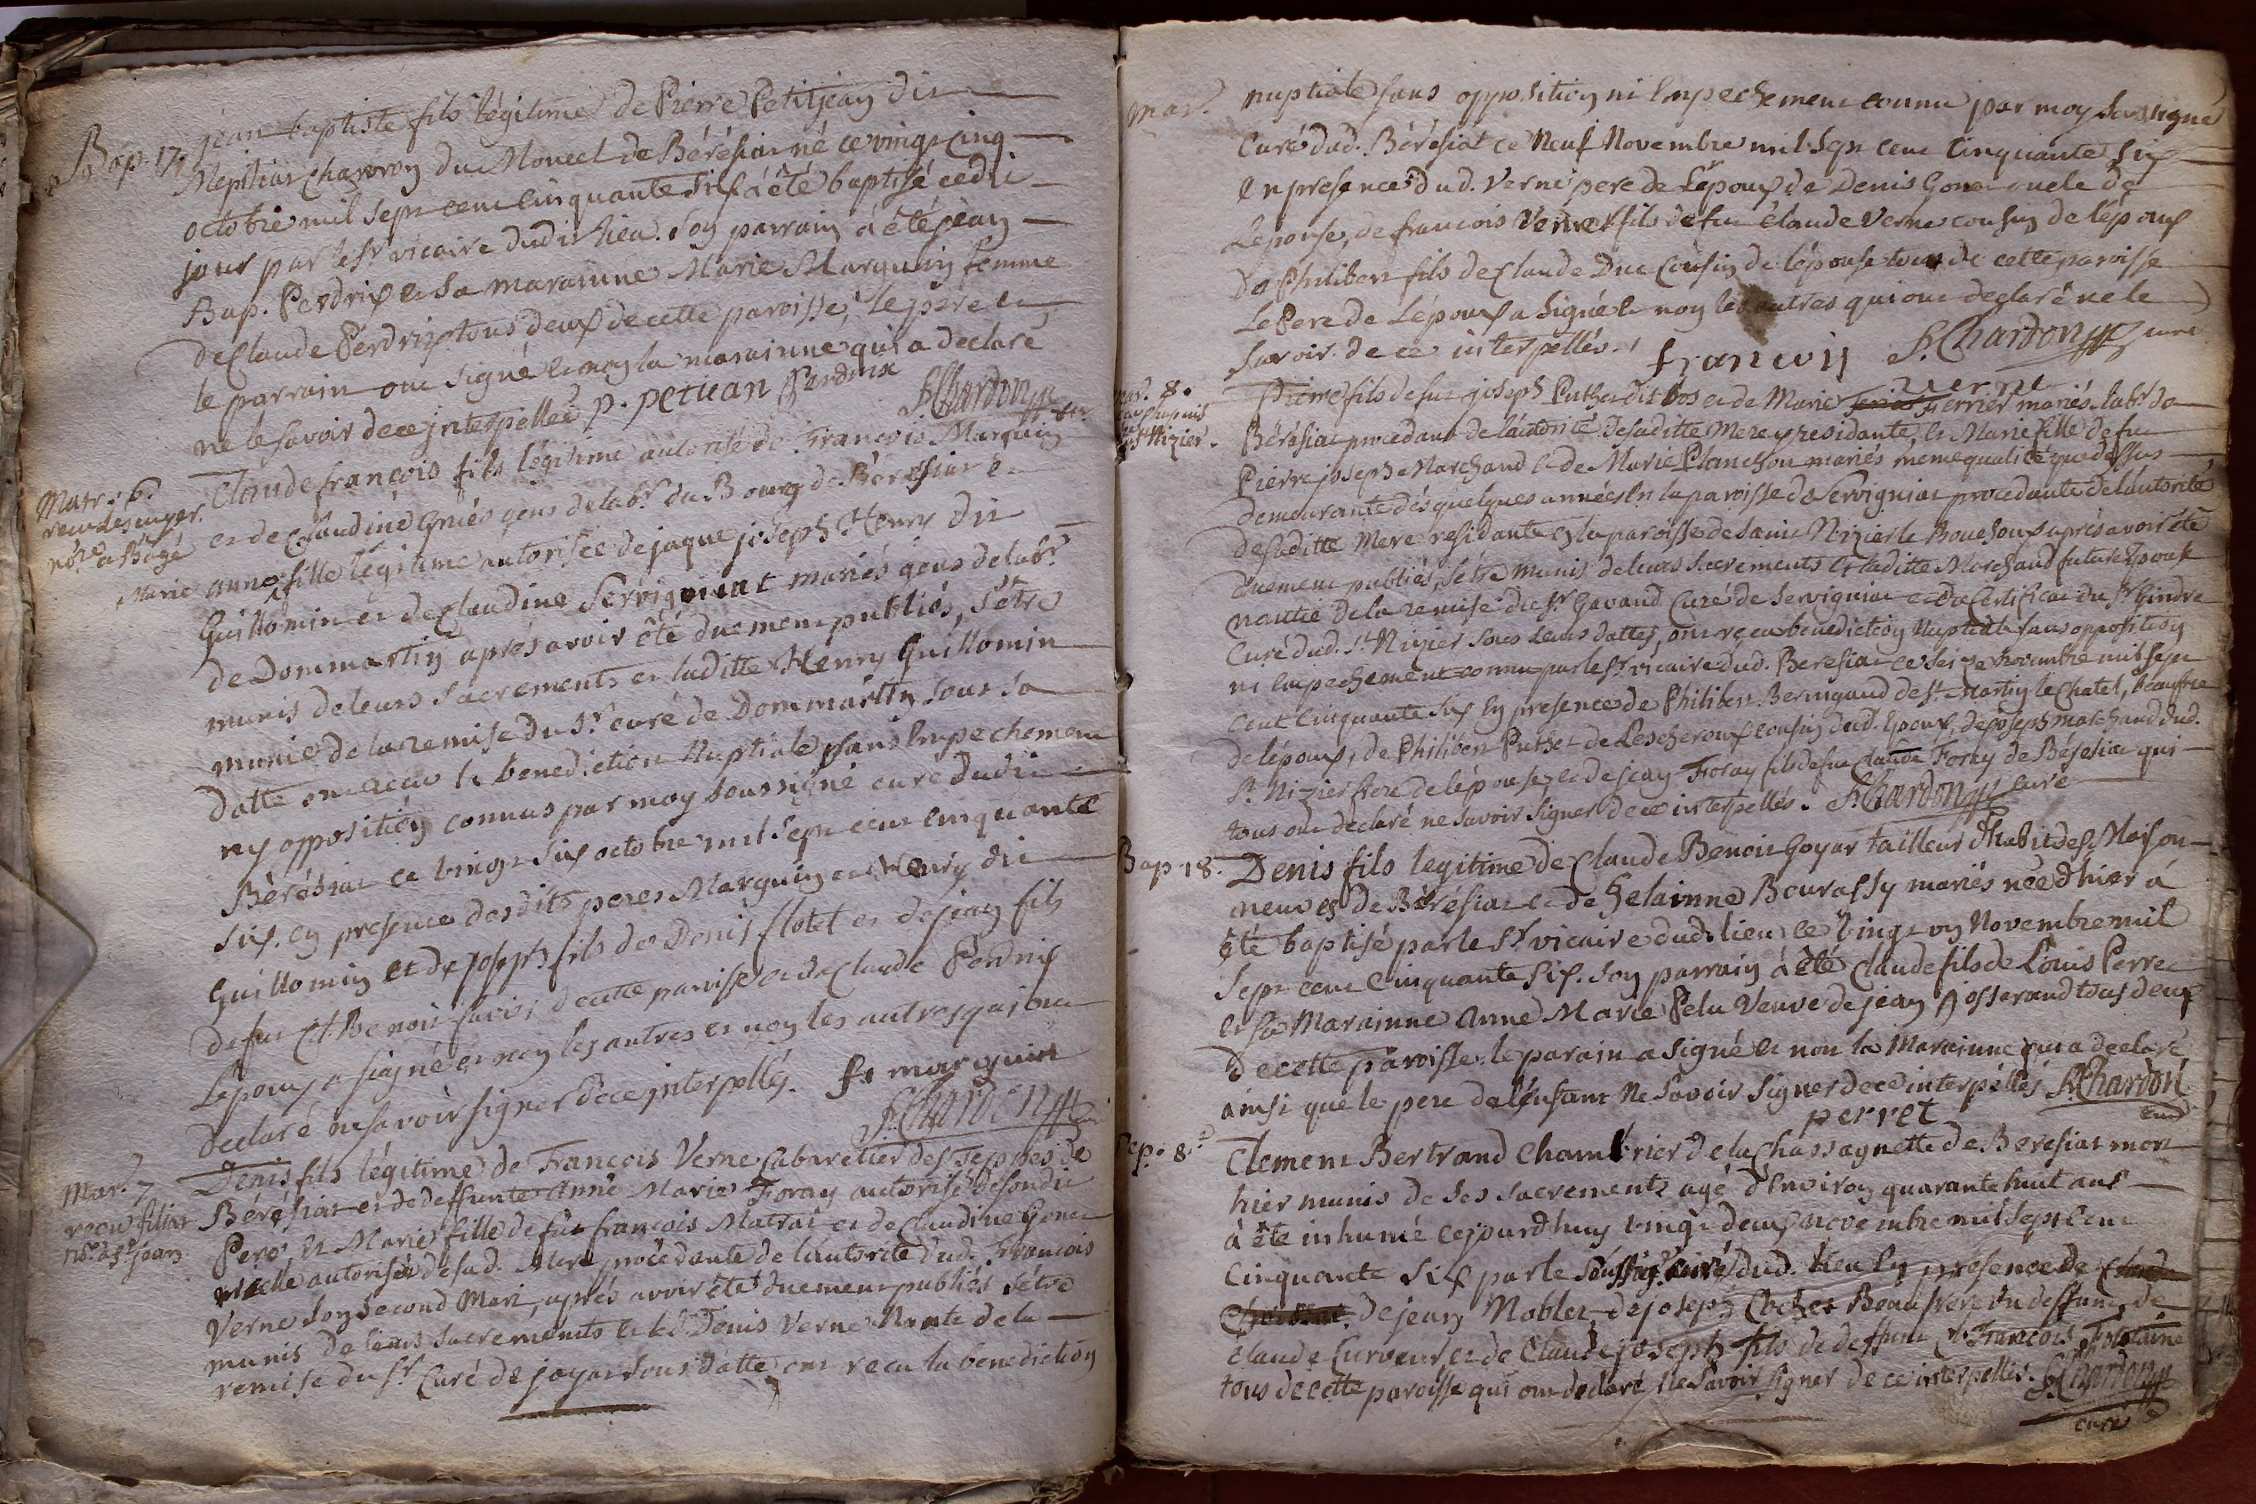 Bap. 17. jean baptiste fils légitime de Pierre Petitjean dit
charron du Moncel de Bérésiat né ce vingt cinq
octobre mil sept cent cinquante six a été baptisé cedit
jour par le Sr vicaire dudit lieu. Son parrain a été jean
Bap. Perdrix et Sa marainne Marie Marguin femme
de Claude Perdrix tous deux de cette paroisse, le pere et
le parrain ont signé et non la marainne qui a declaré
ne le savoir de ce interpellée p. petitjean Perdrix
S. Chardon
Mar. 6. Claude françois fils légitime autorisé de François Marguin
et de Claudine gens de labr. du Bourg de Bérésiat &
not. a Bâgé
Marie anne fille légitime autorisée de jaque joseph Henry dit
Guillomin et de Claudine Servignat mariés gens de labr.
de Dommartin aprés avoir été duement publiés, s'etre
munis de leurs sacrements et laditte Henry Guillomin
munie de la remise du Sr. curé de Dommartin sous sa
datte ont recu la benediction Nuptiale sans Empechement
ny opposition connus par moy soussigné curé dudit
Bérésiat ce vingt six octobre mil sept cent cinquante
six. en presence desdits peres Marguin et Henry dit
Guillomin et de joseph fils de Denis flotet et de jean fils
de feu Cl. Benoit de cette paroisse et de Claude Perdrix
Lepoux a signé et non les autres qui ont
declaré ne savoir signer de ce interpellés. fr marguin
S. Chardon
Mar. 7 Denis fils légitime de François Verne Cabaretier des Teppes de
Bérésiat et de deffunte Anne Marie Foray autorisé de sondit
Pere et Marie fille de feu françois Matrai et de Claudine Gonet
icelle autorisée de sad. Mere procedante de l'autorité dud. François
Verne son second Mari, aprés avoir été duement publiés s'etre
munis de leurs sacrements et led. Denis Verne Nanti de la
remise du Sr. Curé de jayat sous datte ont recu la benediction
Mar. nuptiale sans opposition ni Empechement connu par moy soussigné
Curé dud. Bérésiat ce Neuf Novembre mil sept cent Cinquante six
En presence dud. Verne pere de Lépoux de Denis Gonet oncle de
Lépouse, de francois Verne fils de feu Claude Verne cousin de l'époux
de Philibert fils de Claude Duc Cousin de l'épouse tous de cette paroisse
Le Pere de Lépoux a signé et non les autres qui ont declaré ne le
savoir de ce interpellés. françois S. Chardon curé
verne
Mar. 8. Pierre fils de feu joseph Puthet dit bos et de Marie Ferrier mariés labr. de
St Nizier. Bérésiat procedant de l'autorité de saditte Mere y residante, et Marie fille de feu
Pierre joseph Marchand et de Marie Planchon mariés meme qualité que dessus
demeurante dés quelques années en la paroisse de Servignat procedante de l'autorité
de saditte Mere residante en la paroisse de saint Nizier le Bouchoux aprés avoir été
duement publiés, s'etre munis de leurs sacrements et laditte Marchand future Epouse
nantie de la remise du Sr. Gavand Curé de Servignat et du Certificat du Sr. Gindre
Curé dud. St. Nizier sous leurs dattes, ont reçu benediction Nuptiale sans opposition
ni Empechement connu par le Sr. vicaire dud. Beresiat ce seize novembre mil sept
cent Cinquante six En presence de Philibert Beringaud de St. Martin le Chatel, beaufrere
de l'époux, de Philibert Puthet de Lescheroux cousin dud. Epoux, de joseph marchand dud.
St. Nizier frere de l'épouse, et de jean Foray fils de feu Claude Foray de Bérésiat qui
tous ont declaré ne savoir signer de ce interpellés. S. Chardon curé
Bap 18. Denis fils legitime de Claude Benoit Goyat tailleur d'habit des Maisons
neuves de Bérésiat et de helainne Bourassy mariés né d'hier a
été baptisé par le Sr. vicaire dud. lieu ce vingt un Novembre mil
sept cent Cinquante six. son parrain a été Claude fils de Louis Perret
et sa Marainne Anne Marie Pelu Veuve de jean josserand tous deux
de cette paroisse. le parain a signé et non la Marainne qui a declaré
ainsi que le pere de l'enfant ne savoir signer de ce interpellés S. Chardon
perret curé
Sep. 8. Clement Bertrand Chambrier de la Chassagnette de Beresiat mort
hier munis de ses sacrements agé d'Environ quarante huit ans
a été inhumé cejourdhuy vingt deux novembre mil sept cent
Cinquante six par le soussigné curé dud. lieu En presence de
de jean Noblet, de joseph Cochet Beaufrere du deffunt, de
Claude Curveur et de Claude joseph fils de deffunt François Fontaine
tous de cette paroisse qui ont declaré ne savoir signer de ce interpellés. S. Chardon
curé